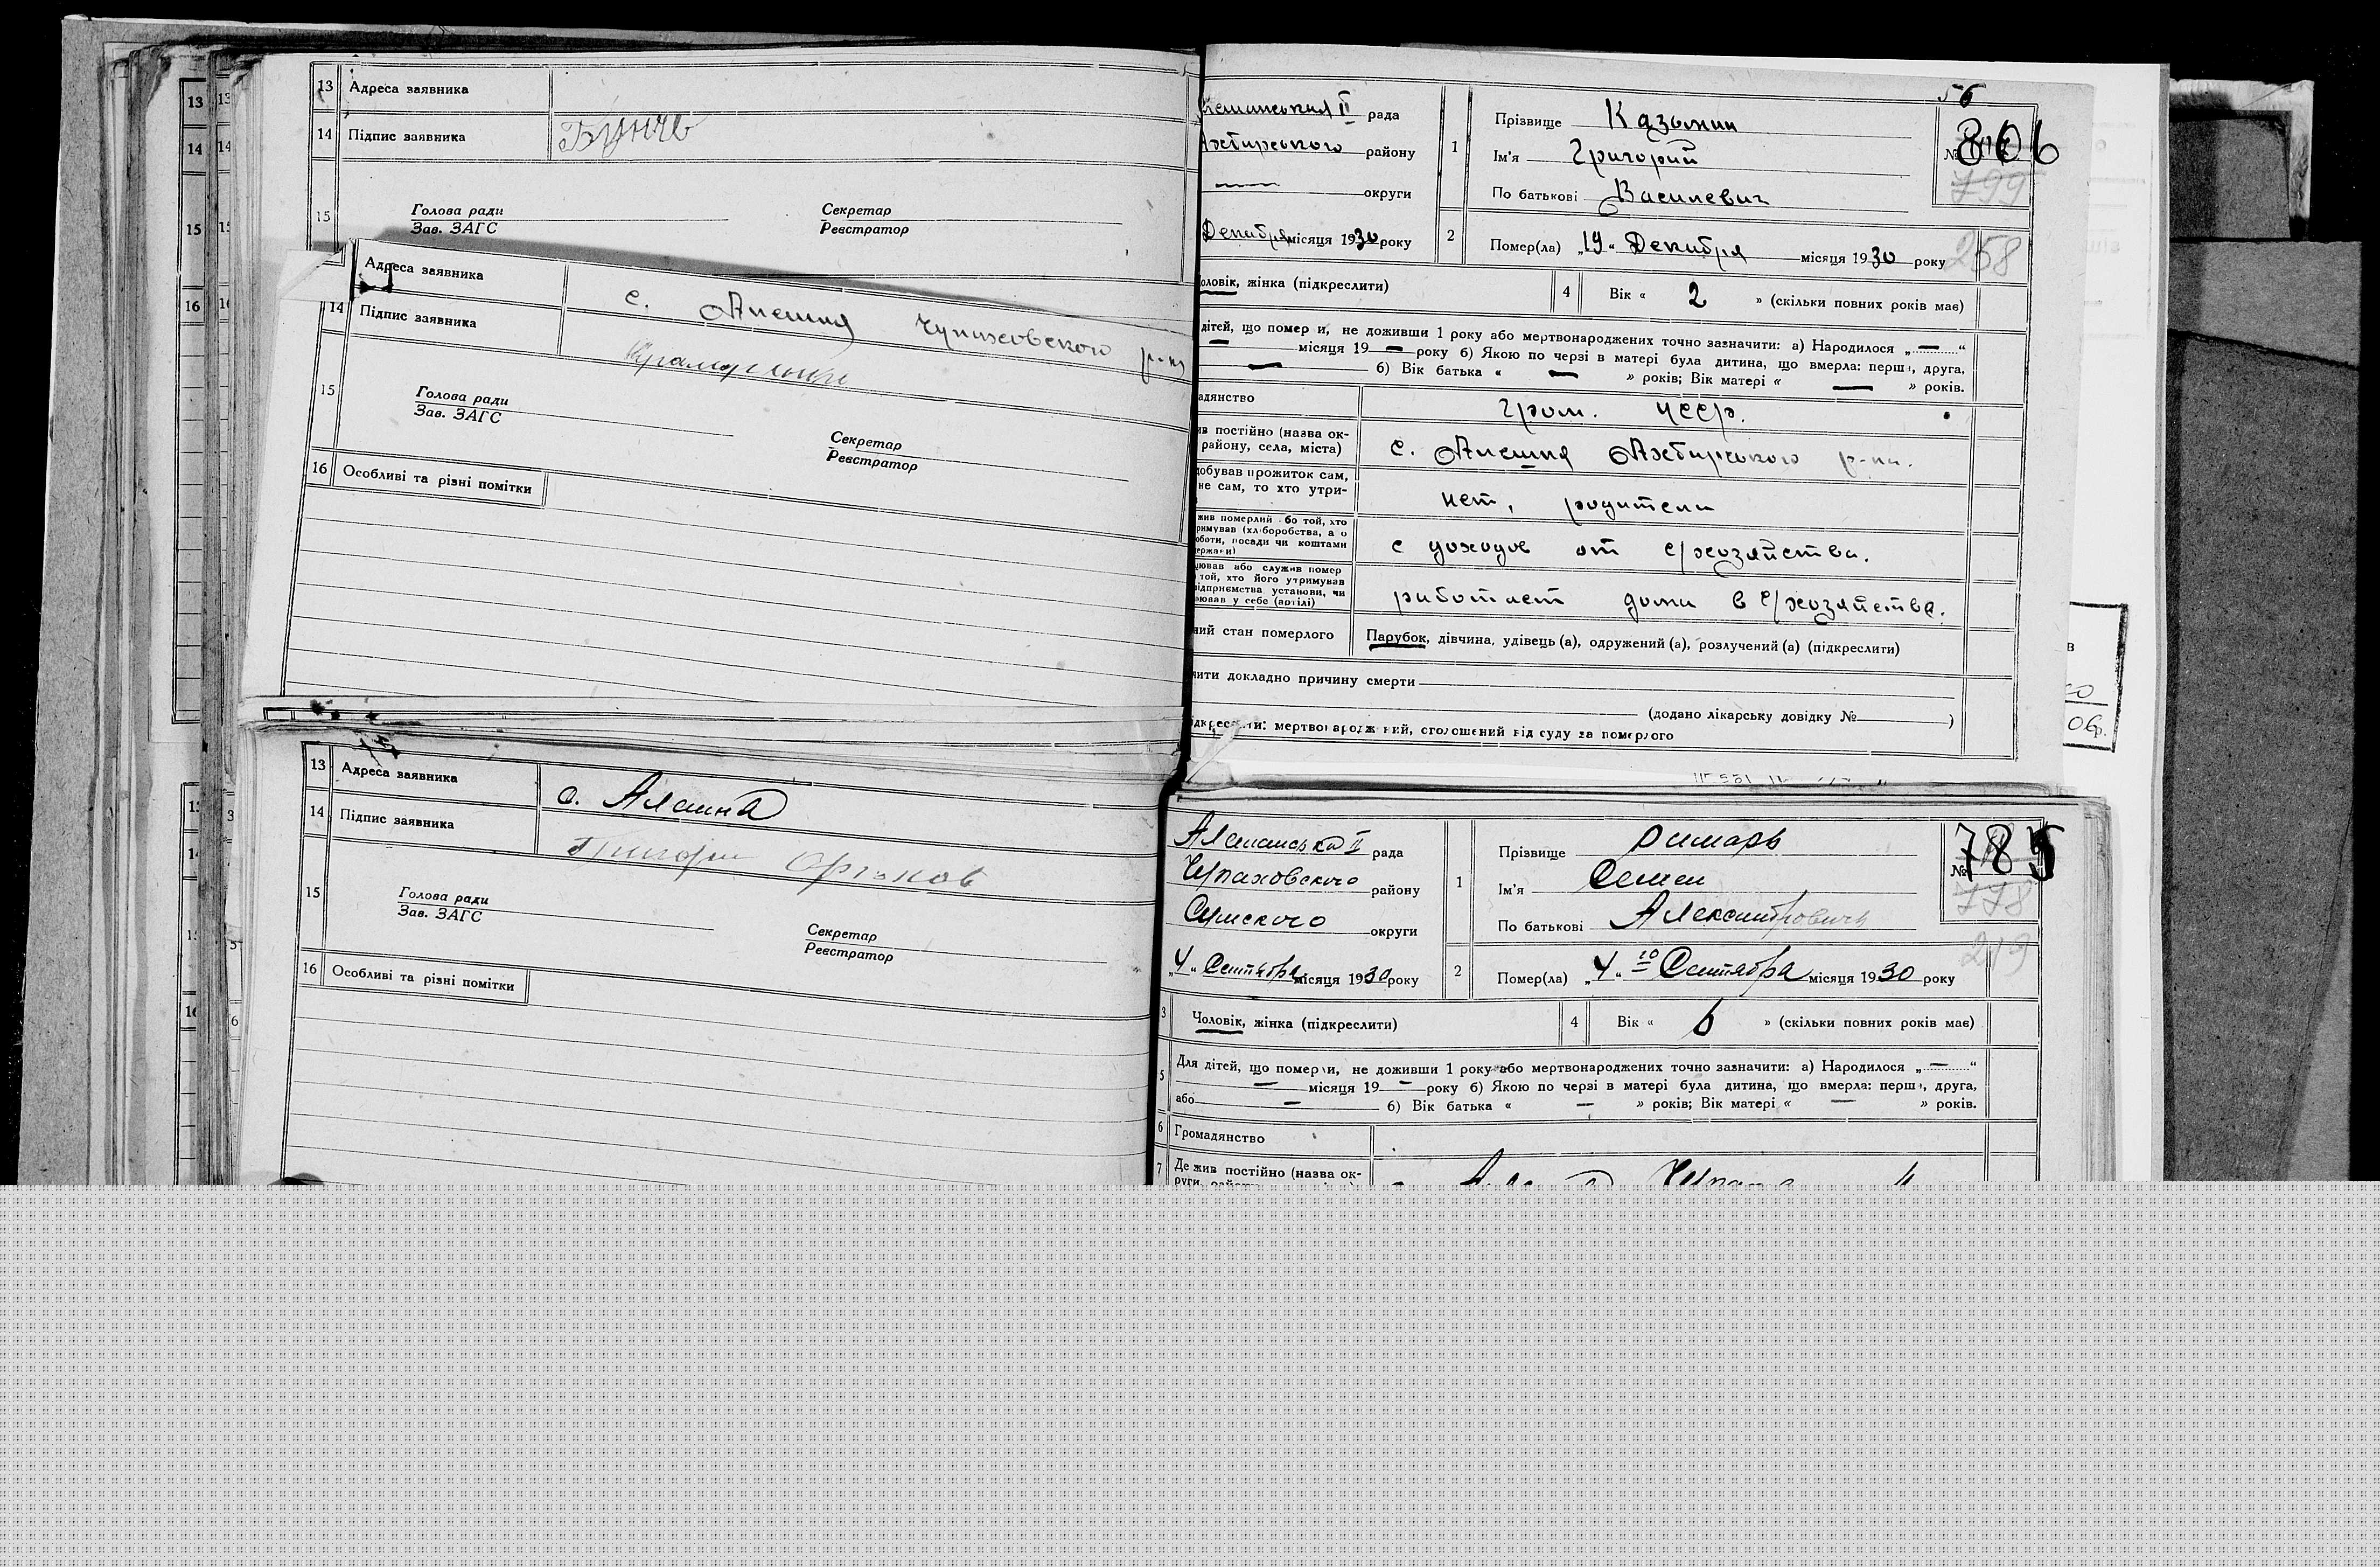 13 Адреса заявника
14 Підпис заявника
15 Голова ради Секретар
Зав. ЗАГС Реєстратор
Адреса заявника с. Алешня Чупиховского р-на
14 Підпис заявника
15 Голова ради
Зав. ЗАГС
Секретар
Реєстратор
16 Особливі та різні помітки
13 Адреса заявника с. Алешня
14 Підпис заявника Григори
15 Голова ради
Зав. ЗАГС
Секретар
Реєстратор
16 Особливі та різні помітки
56
II рада
району
округи
Декабря місяця 1930 року
1 Прізвище Казьмин
Ім'я Григорий
По батькові Васильевич
№ 806
799
2 Помер(ла) „19" Декабря місяця 1930 року
258
оловік, жінка (підкреслити) 4 Вік « 2 » (скільки повних років має)
дітей, що померли, не доживши 1 року або мертвонароджених точно зазначити: а) Народилося „ — "
— місяця 19 — року б) Якою по черзі в матері була дитина, що вмерла: перша, друга,
— б) Вік батька « — » років; Вік матері « — » років.
адянство гром. УССР.
ив постійно (назва ок-
району, села, міста) с. Алешня Ахтырского р-на.
добував прожиток сам,
не сам, то хто утри- нет, родители
жив померлий або той, хто
римував (хліборобства, а о
оботи, посади чи коштами
с доходов от с/хозяйства.
цював або служив помер
той, хто його утримував
ідприємства установи, чи
ював у себе (артілі) работает дома в с/хозяйства.
ний стан померлого Парубок, дівчина, удівець (а), одружений (а), розлучений (а) (підкреслити)
чити докладно причину смерти
(додано лікарську довідку № )
ідкреслити: мертвонароджений, оголошений від суду за померлого
Алешанська II рада
району
Сумского округи
„4" Сентября місяця 1930 року
1 Прізвище Римарь
Ім'я Семен
По батькові Александрович
№ 785
778
2 Помер(ла) „4" го Сентября місяця 1930 року
219
3 Чоловік, жінка (підкреслити) 4 Вік « 6 » (скільки повних років має)
5 Для дітей, що померли, не доживши 1 року або мертвонароджених точно зазначити: а) Народилося „ — "
— місяця 19 — року б) Якою по черзі в матері була дитина, що вмерла: перша, друга,
або — б) Вік батька « — » років; Вік матері « — » років.
6 Громадянство
7 Де жив постійно (назва ок-